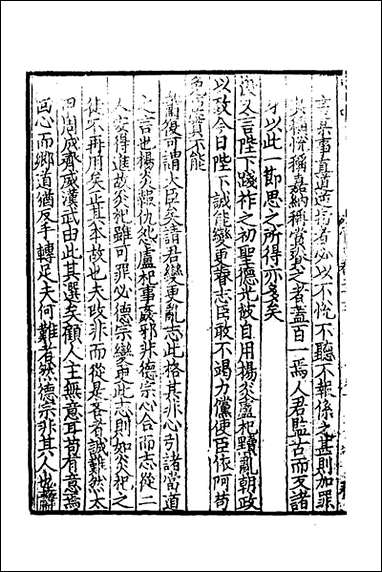 言某事直道逆指者必以不悅不聽不報係之甚則加罪
其稱悅稱嘉納稱賞之者蓋百一焉人君監古而反諸
身以此一節思之所得亦多矣
復又言陛下踐祚之初聖德光被自用楊炎盧杞黷亂朝政
以致今日陛下誠能變更睿志臣敢不竭力儻使臣依阿苟
免臣實不能
蕭復可謂大臣矣請君變更亂志此格其非心引諸當道
之言也楊炎報仇怨盧杞事姦邪非德宗心合而志從二
人安得進故炎杞雖可罪必德宗變更此志則如炎杞之
徒不再用矣其本故也夫改非而從是吝者誠難然太
甲周成齊威漢武由此其選矣顧人主無意耳苟有意焉
回心而鄉道猶反手轉足夫何難者然德宗非其人也